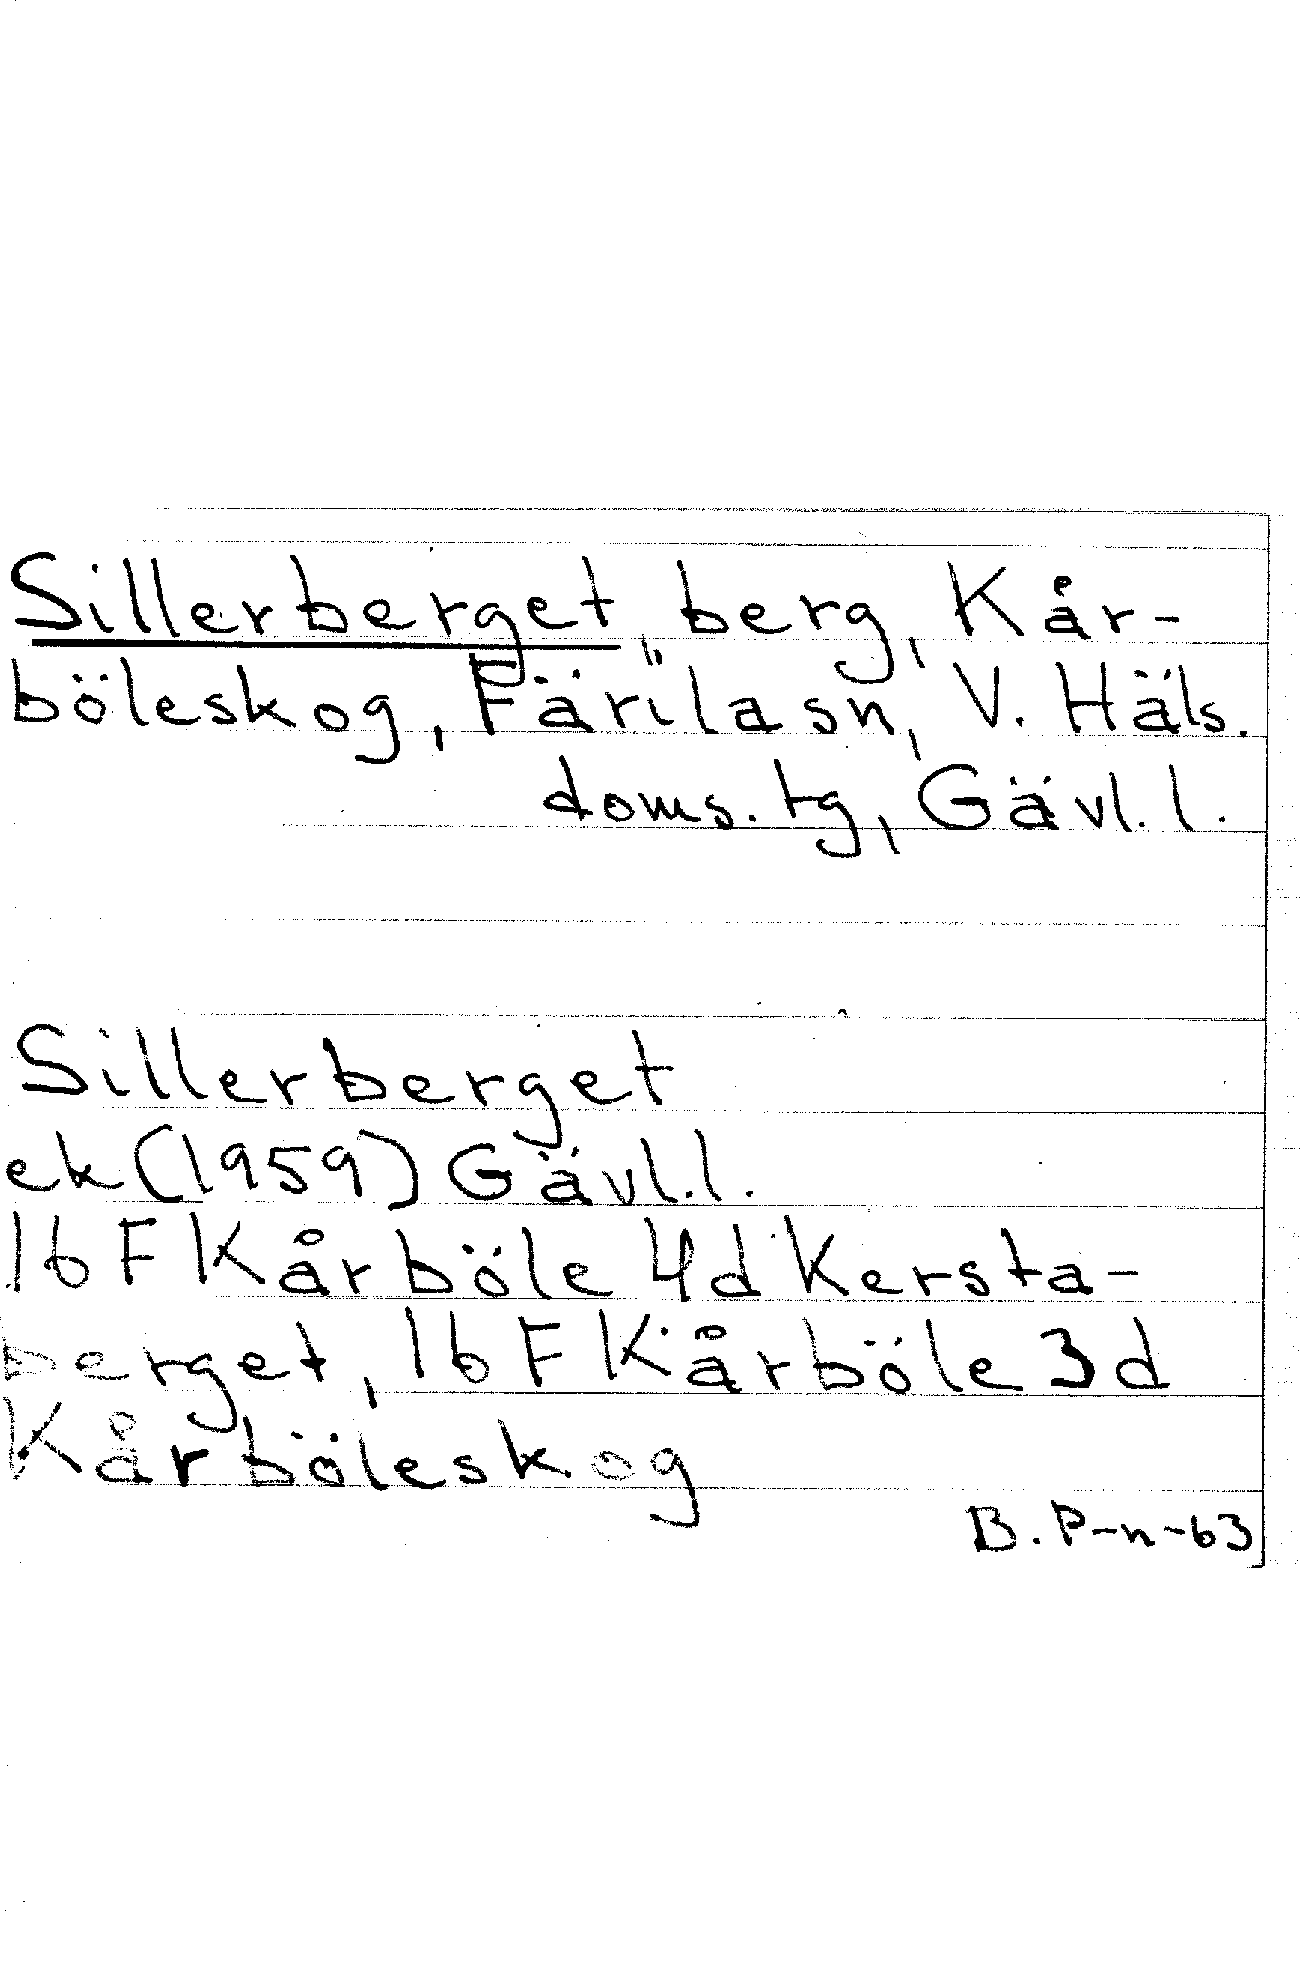 Sillerberget, berg, Kår-
böleskog, Färila sn, V. Häls.
doms. tg, Gävl. l.
Sillerberget
ek (1959) Gävl. l.
16 F Kårböle 4d Kersta-
berget, 16 F Kårböle 3d
Kårböleskog
B. P-n-63